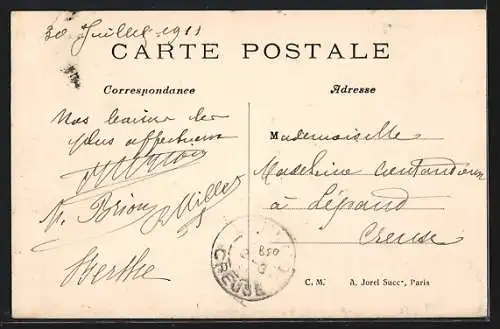 30 Juillet 1911
CARTE POSTALE
Correspondance
Adresse
Nos baisers les
plus affectueux
Berthe
Mademoiselle
Madeleine
à Lépaud
Creuse
CREUSE
C. M. A. Jorel Succr, Paris